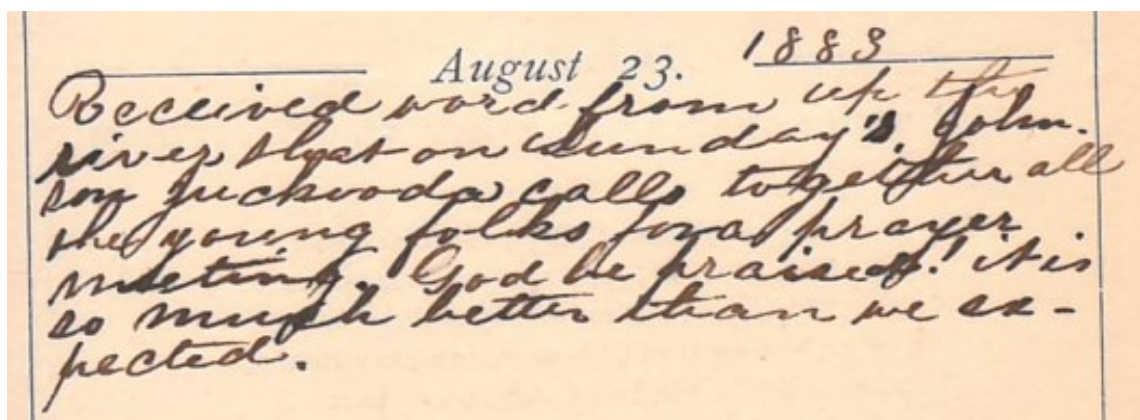 August 23. 1883
Received word from up the
river that on Sunday's John-
son calls together all
the young folks for a prayer
meeting. God be praised! it is
so much better than we ex-
pected.